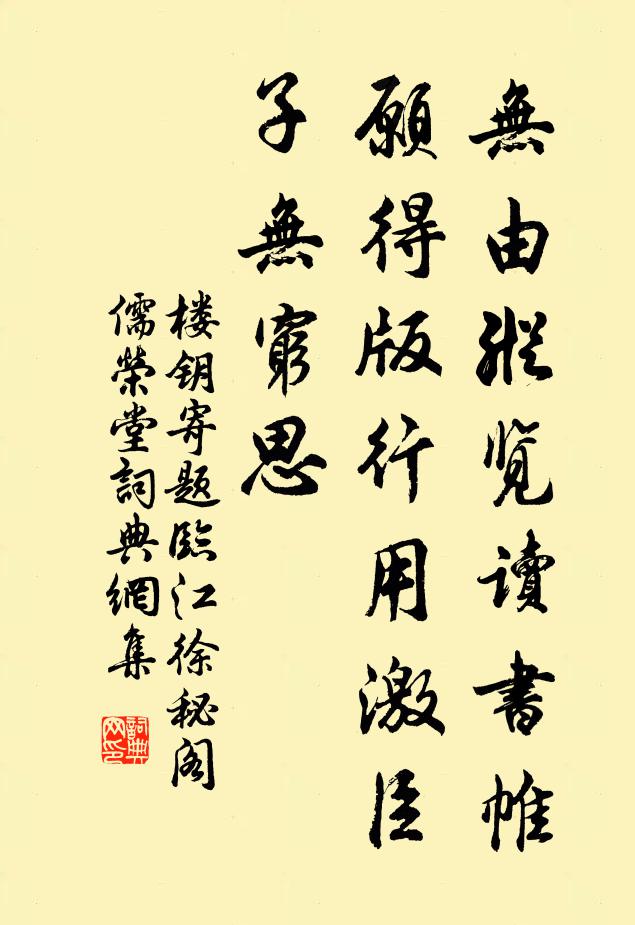 無由縱览讀書帷
願得版行用激臣
子無窮思
楼钥寄題臨江徐秘阁
儒榮堂詞典網集
詞典网印